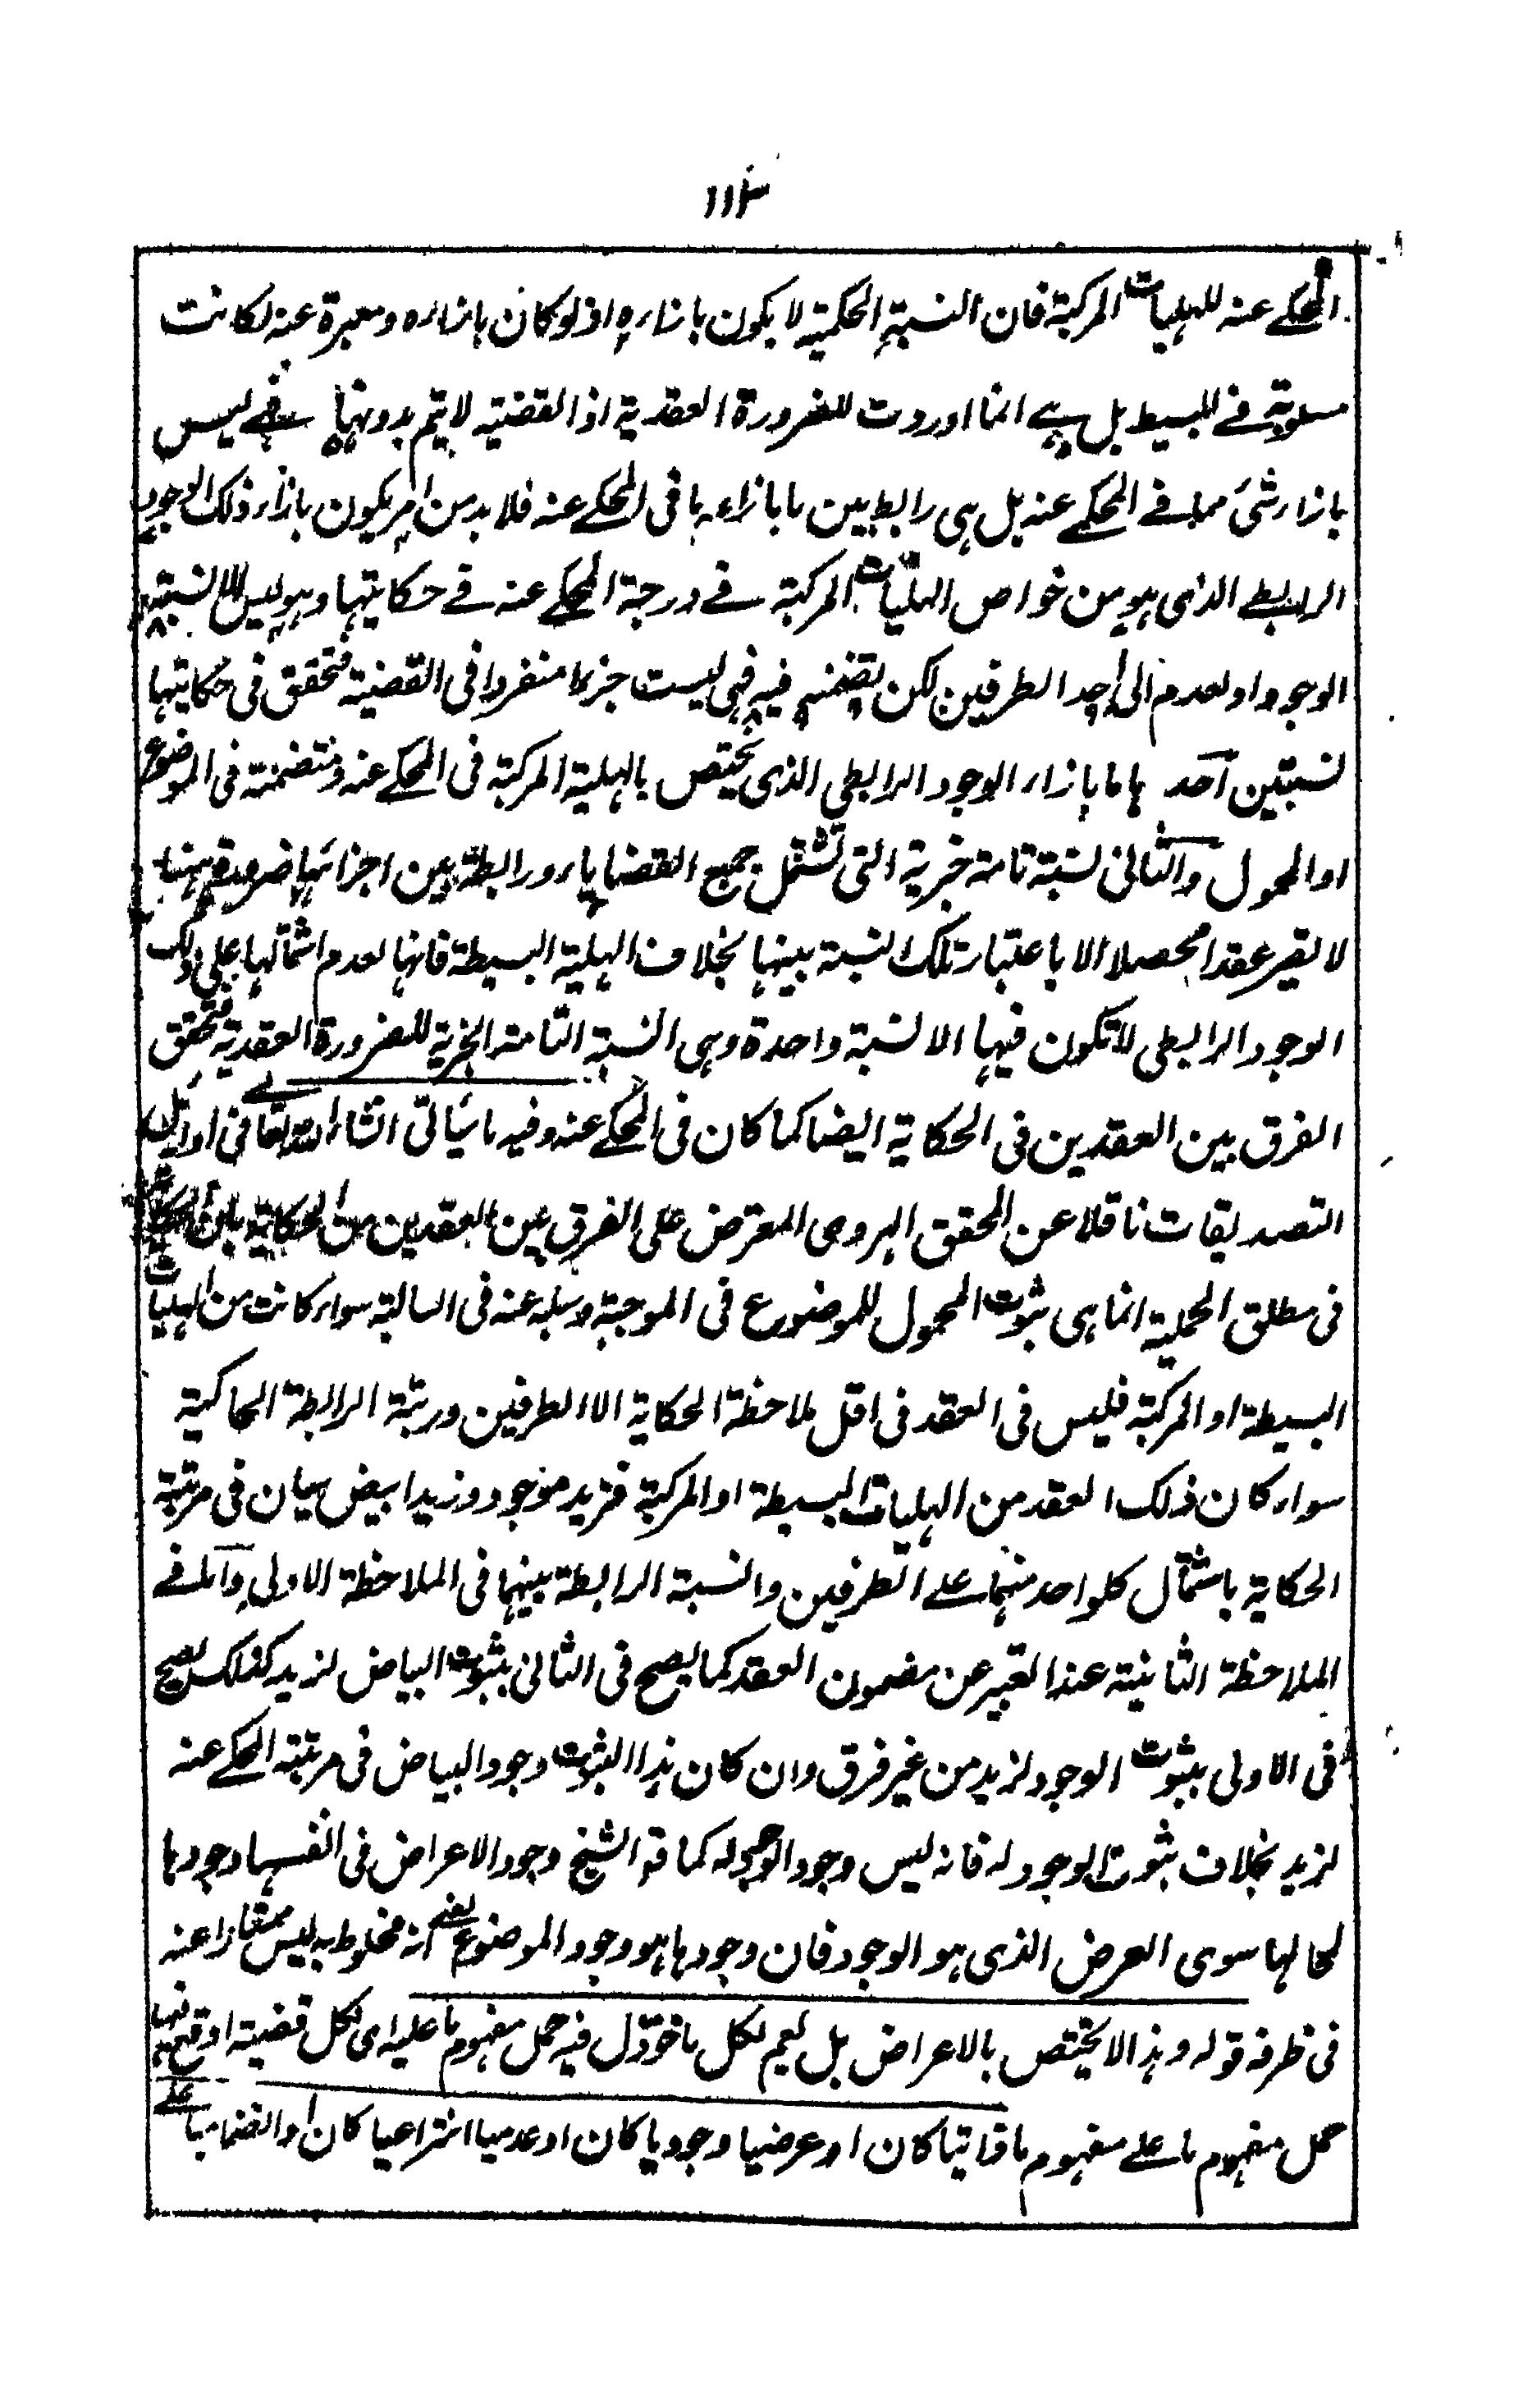 ١١٣
المحكے عنه للہليات المركبة فان النسبة الحكمية لا يكون بازاره اذ لو كان بازاره ومعبرة عنه لكانت
فے البسيط بل ہے انما اوردت للضرورة العقدية اذ القضية لا يتم بدونہا فہے ليس
بازار شئ مما فے المحكے عنه بل ہی رابط بين ما بازاءہ ما فی المحكے عنه فلا بد من امر يكون بازار ذلك الوجود
الرابطے الذی ہو من خواص الہليات المركبة فے درجة المحكے عنه فے حكايتہا وہو ليس الا نسبة
الوجود او العدم الی احد الطرفين لكن تضمنہ فيه فہی ليست جزءا منفردا فی القضية فتحقق فی حكايتہا
نسبتين احدہما بازار الوجود الرابطی الذی يختص بالہلية المركبة فی المحكے عنه ومتضمنة فی الموضوع
او المحمول والثانی نسبة تامة خبرية التی تشتمل جميع القضايا ورابطة بين اجزائہا ضرورة انہا
لا تصير عقدا محصلا الا باعتبار تلك النسبة بينہا بخلاف الہلية البسيطة فانہا لعدم اشتمالہا علی ذلك
الوجود الرابطی لا تكون فيہا الا نسبة واحدة وہی النسبة التامة الخبرية للضرورة العقدية فتحقق
الفرق بين العقدين فی الحكاية ايضا كما كان فی المحكے عنه وفيه ما سياتی انشاء الله تعالے فی اوائل
التصديقات ناقلا عن المحقق الہروی المعترض علی الفرق بين العقدين من الحكاية بان الحكاية
فی مطلق الحملية انما ہی ثبوت المحمول للموضوع فی الموجبة وسلبه عنه فی السالبة سوار كانت من الہليات
البسيطة او المركبة فليس فی العقد فی اقل ملاحظة الحكاية الا الطرفين ورتبة الرابطة الحاكية
سوار كان ذلك العقد من الہليات البسيطة او المركبة فزيد موجود وزيد ابيض سيان فی مرتبة
الحكاية باشتمال كلواحد منہما علے الطرفين والنسبة الرابطة بينہما فی الملاحظة الاولی واما فے
الملاحظة الثانية عند التعبير عن مضمون العقد كما يصح فی الثانی بثبوت البياض لزيد كذلك يصح
فی الاولی بثبوت الوجود لزيد من غير فرق وان كان ہذا الثبوت وجود البياض فی مرتبة المحكے عنه
لزيد بخلاف ثبوت الوجود له فانه ليس وجود الوجود له كما قو الشيخ وجود الاعراض فی انفسہا وجودہا
لمحالہا سوی العرض الذی ہو الوجود فان وجودہا ہو وجود الموضوع بمعنی انه مخلوط به ليس ممتازا عنه
فی ظرفه قوله وہذا لا يختص بالاعراض بل يعم لكل ما حوّل فيه حمل مفہوم ما عليه ای لكل قضية اوقع فيہا
حمل مفہوم ما علے مفہوم ما ذاتيا كان او عرضيا وجوديا كان او عدميا انتزاعيا كان او انضماميا علے